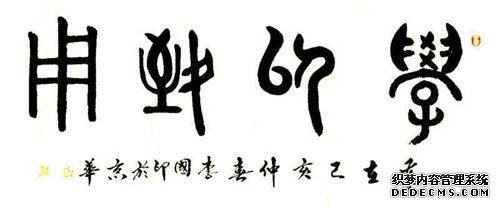 學以致用
岁在己亥仲春李國印於京華
织梦内容管理系统
DEDECMS.COM